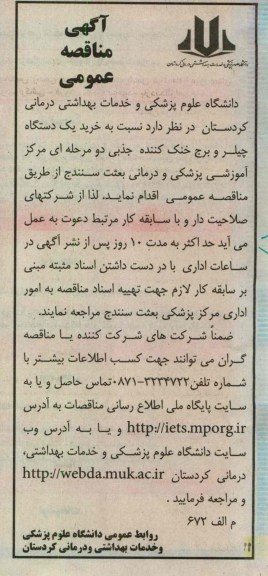 آگهی
مناقصه
عمومی
دانشگاه علوم پزشکی و خدمات بهداشتی درمانی
کردستان در نظر دارد نسبت به خرید یک دستگاه
چیلر و برج خنک کننده جذبی دو مرحله ای مرکز
آموزشی پزشکی و درمانی بعثت سنندج از طریق
مناقصه عمومی اقدام نماید. لذا از شرکتهای
صلاحیت دار و با سابقه کار مرتبط دعوت به عمل
می آید حد اکثر به مدت ۱۰ روز پس از نشر آگهی در
ساعات اداری با در دست داشتن اسناد مثبته مبنی
بر سابقه کار لازم جهت تهیه اسناد مناقصه به امور
اداری مرکز پزشکی بعثت سنندج مراجعه نمایند.
ضمناً شرکت های شرکت کننده یا مناقصه
گران می توانند جهت کسب اطلاعات بیشتر با
شماره تلفن ۳۲۳۴۷۲۲-۰۸۷۱ تماس حاصل و یا به
سایت پایگاه ملی اطلاع رسانی مناقصات به آدرس
http://iets.mporg.ir و یا به آدرس وب
سایت دانشگاه علوم پزشکی و خدمات بهداشتی،
درمانی کردستان http://webda.muk.ac.ir
و مراجعه فرمایید .
م الف ۶۷۲
روابط عمومی دانشگاه علوم پزشکی
وخدمات بهداشتی ودرمانی کردستان